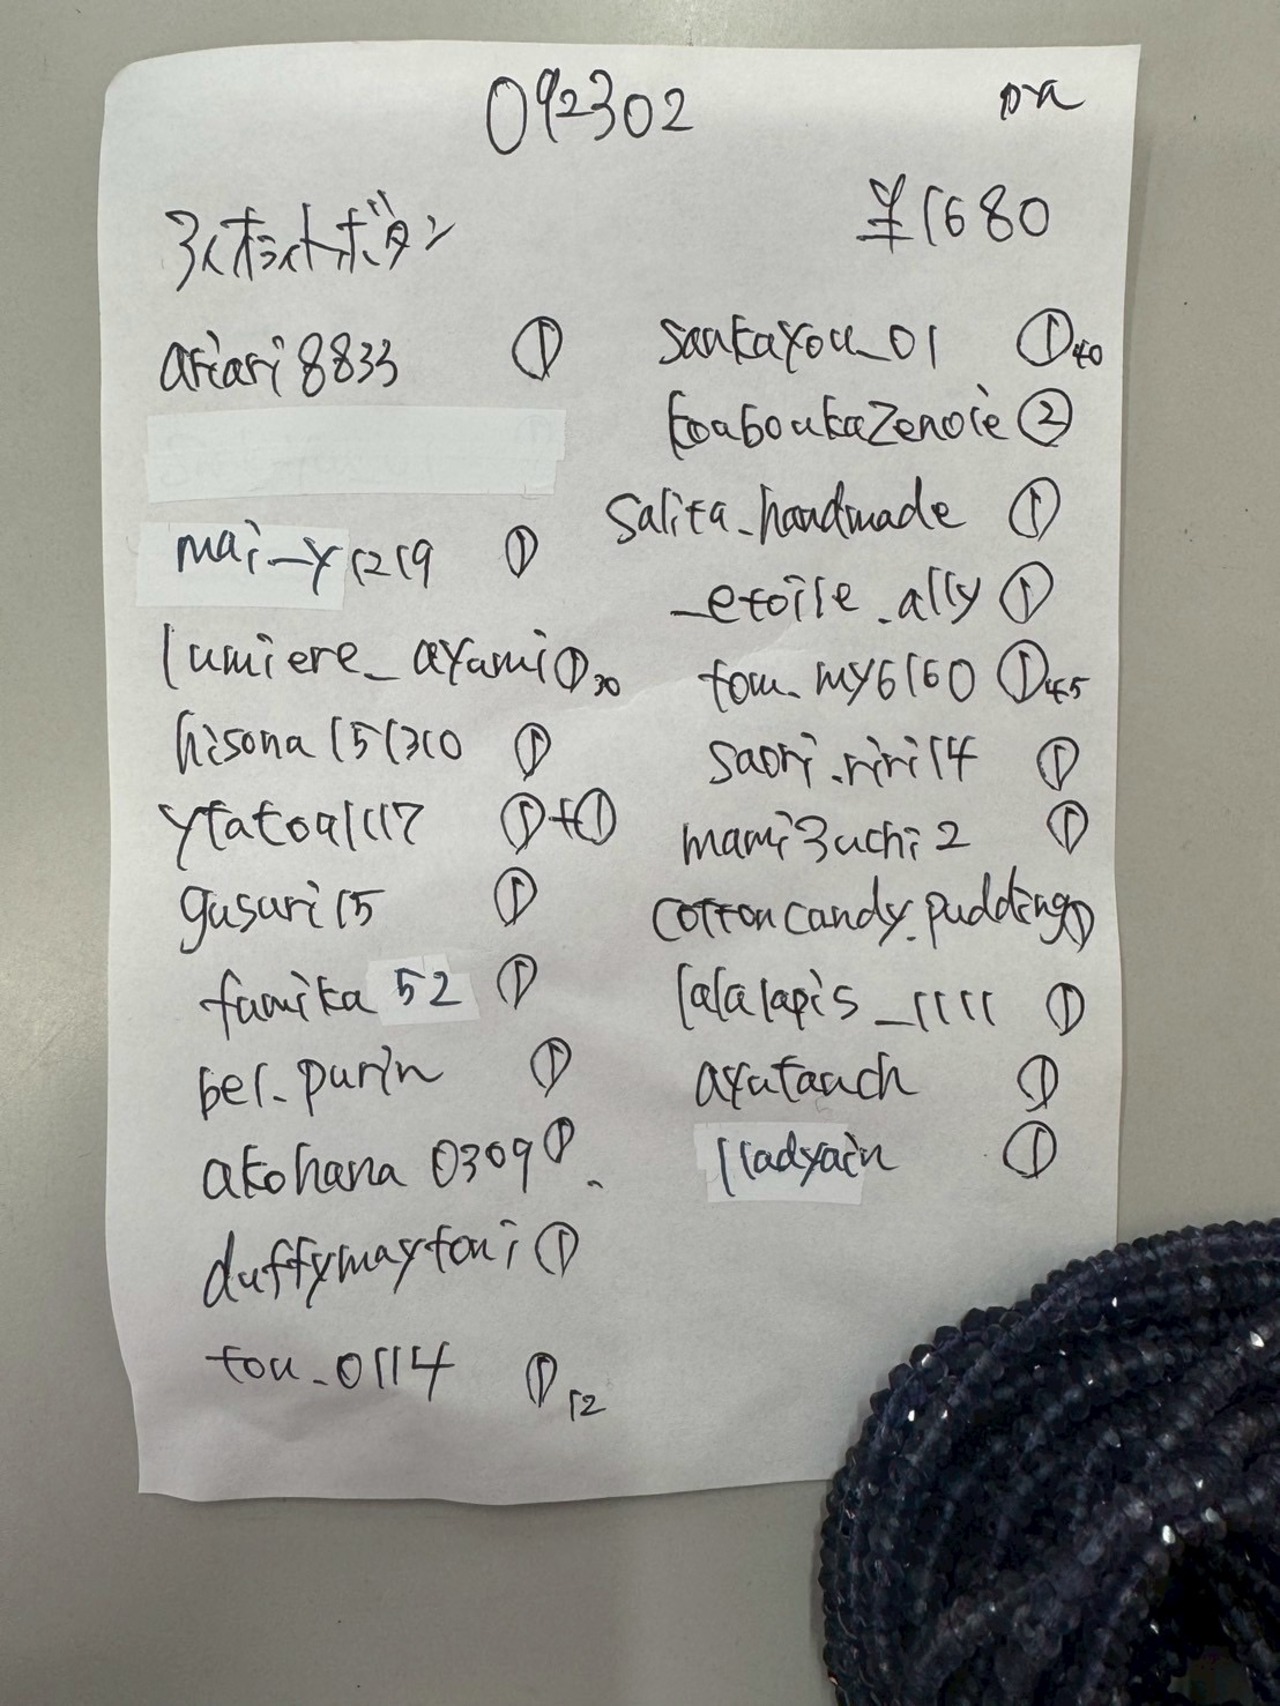 092302
アイオライトボタン ¥1680
ariari8833 ①
mai_y1219 ①
lumiere_ayami ① 30
hisona151310 ①
ytatoa1117 ①+①
gusuri15 ①
famika52 ①
bel_purin ①
akohana0309 ①
duffymaytoni ①
tou_0114 ① 12
saukayou_01 ① 40
koaboukazenoie ②
salita_handmade ①
_etoile_ally ①
tom_my6160 ① 45
saori.riri14 ①
mami3uchi2 ①
cottoncandy.pudding ①
lalalapis_1111 ①
ayutauch ①
lladyain ①